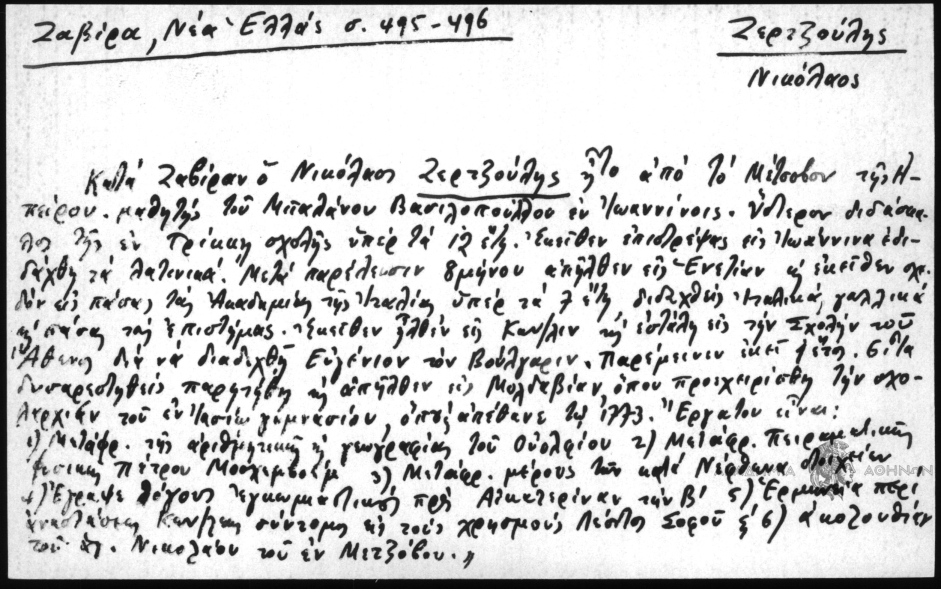 Ζαβίρα, Νέα Ἑλλάς σ. 495-496
Ζερτζούλης
Νικόλαος
Κατά Ζαβίραν ὁ Νικόλαος Ζερτζούλης ἦτο ἀπό τό Μέτσοβον τῆς Ἠ-
πείρου. μαθητής τοῦ Μπαλάνου Βασιλοπούλου ἐν Ἰωαννίνοις. Ὕστερον διδάσκα-
λος τῆς ἐν Τρίκκῃ σχολῆς ὑπέρ τά 12 ἔτη. Ἐκεῖθεν ἐπιστρέψας εἰς Ἰωάννινα ἐδι-
δάχθη τά λατινικά. Μετά παρέλευσιν 8μήνου ἀπῆλθεν εἰς Ἐνετίαν κ ἐκεῖθεν σχε-
δόν εἰς πάσας τάς Ἀκαδημίας τῆς Ἰταλίας ὑπέρ τά 7 ἔτη διδαχθείς Ἰταλικά, γαλλικά
κ πάσας τάς ἐπιστήμας. Ἐκεῖθεν ἦλθεν εἰς Κων/λιν κ ἐστάλη εἰς τήν Σχολήν τοῦ
Ἄθωνος διά νά διαδεχθῇ Εὐγένιον τόν Βούλγαριν. Παρέμεινεν ἐκεῖ ἔτος. Εἶτα
δυσαρεστηθείς παρῃτήθη κ ἀπῆλθεν εἰς Μολδαβίαν, ὅπου προεχειρίσθη τήν σχο-
λαρχίαν τοῦ ἐν Ἰασίῳ γυμνασίου, ὅπου ἀπέθανε τῷ 1773. Ἔργα του εἶναι:
1) Μετάφρ. τῆς ἀριθμητικῆς κ γεωγραφίας τοῦ Οὐολφίου 2) Μετάφρ. Πειραματικῆς
φυσικῆς Πέτρου 3) Μετάφρ. μέρους τῶν κατά στοιχείων
4) Ἔγραψε λόγους ἐγκωμιαστικούς πρός Αἰκατερίναν τήν Β' 5) Ἑρμηνεία περί
ἀναστάσεως Κων/λεως σύντομη εἰς τούς χρησμούς Λέοντος Σοφοῦ 6) ἀκολουθίαν
τοῦ ἁγ. Νικολάου τοῦ ἐν Μετζόβου. 〃
ΑΘΗΝΩΝ